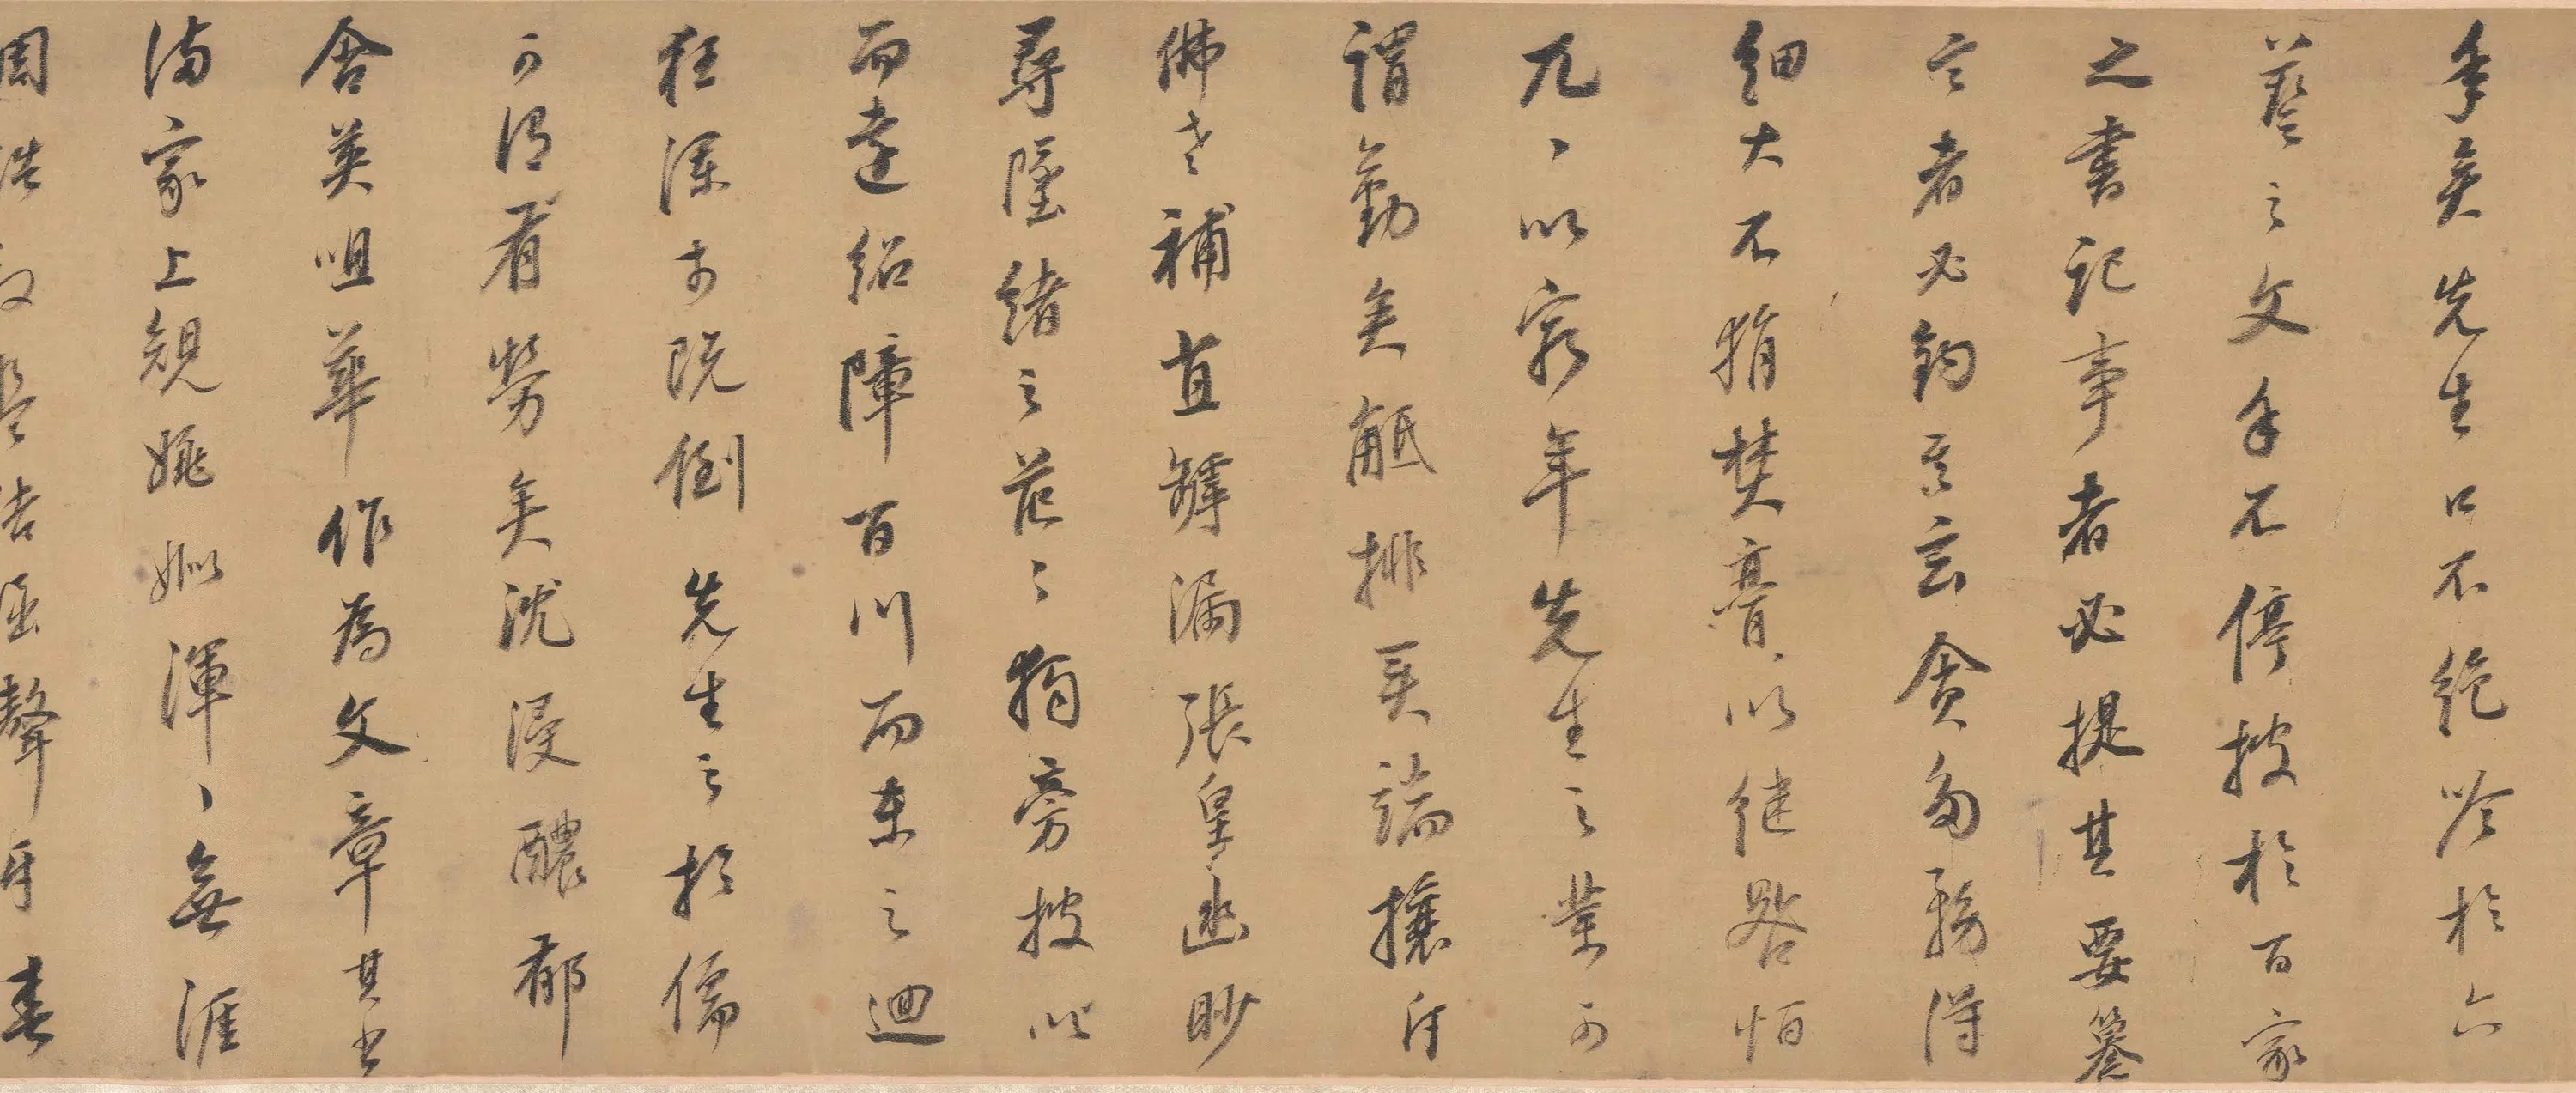 年矣先生口不絕吟於六
藝之文手不停披於百家
之書記事者必提其要纂
言者必鉤其玄貪多務得
細大不捐焚膏以継晷恒
兀、以窮年先生之業可
謂勤矣觝排異端攘斥
佛老補苴罅漏張皇幽眇
尋墜緒之茫〻獨旁披以
而遠紹障百川而東之迴
狂瀾於既倒先生之於儒
可謂有勞矣沈浸醲郁
含英咀華作為文章其書
滿家上規姚姒渾、無涯
周誥殷盤佶屈聱牙春